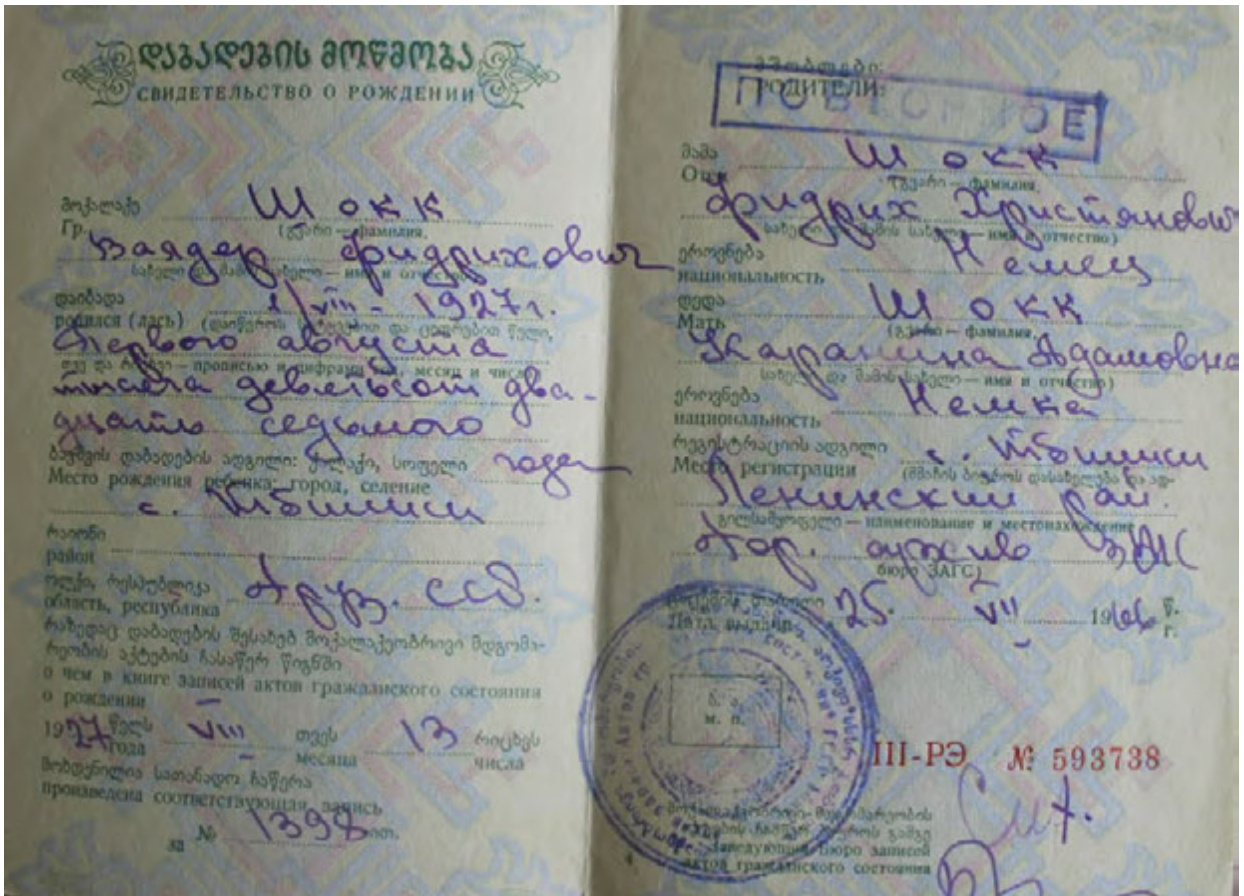 დაბადების მოწმობა
СВИДЕТЕЛЬСТВО О РОЖДЕНИИ
მოქალაქე Шокк
Гр. (გვარი — фамилия,
Валдер Фридрихович
სახელი და მამის სახელი — имя и отчество)
დაიბადა 1/VIII - 1927 г.
родился (лась) (დაიწეროს სიტყვებით და ციფრებით წელი,
Первого августа
თვე და რიცხვი — прописью и цифрами год, месяц и число)
тысяча девятьсот два-
дцать седьмого
ბავშვის დაბადების ადგილი: ქალაქი, სოფელი года
Место рождения ребенка: город, селение
г. Тбилиси
რაიონი
район
ოლქი, რესპუბლიკა
область, республика Груз. ССР.
რაზედაც დაბადების შესახებ მოქალაქეობრივი მდგომა-
რეობის აქტების ჩასაწერ წიგნში
о чем в книге записей актов гражданского состояния
о рождении
1927 წელს VIII თვეს 13 რიცხვს
года месяца числа
მოხდენილია სათანადო ჩაწერა
произведена соответствующая запись
за № 1398
მშობლები:
РОДИТЕЛИ:
ПОВТОРНОЕ
მამა Шокк
Отец (გვარი — фамилия,
Фридрих Христианович
სახელი და მამის სახელი — имя и отчество)
ეროვნება Немец
национальность
დედა Шокк
Мать (გვარი — фамилия,
Адамовна
სახელი და მამის სახელი — имя и отчество)
ეროვნება Немка
национальность
რეგისტრაციის ადგილი г. Тбилиси
Место регистрации (მმაჩის ბიუროს დასახელება და ად-
Ленинский рай.
გილსამყოფელი — наименование и местонахождение
Гор. ЗАГС
бюро ЗАГС)
25. VII 1966 წ.
Дата выдачи г.
ბ. ა.
м. п.
III-РЭ № 593738
მოქალაქეობრივი მდგომარეობის
აქტების ჩამწერ ბიუროს გამგე
Заведующий бюро записей
актов гражданского состояния